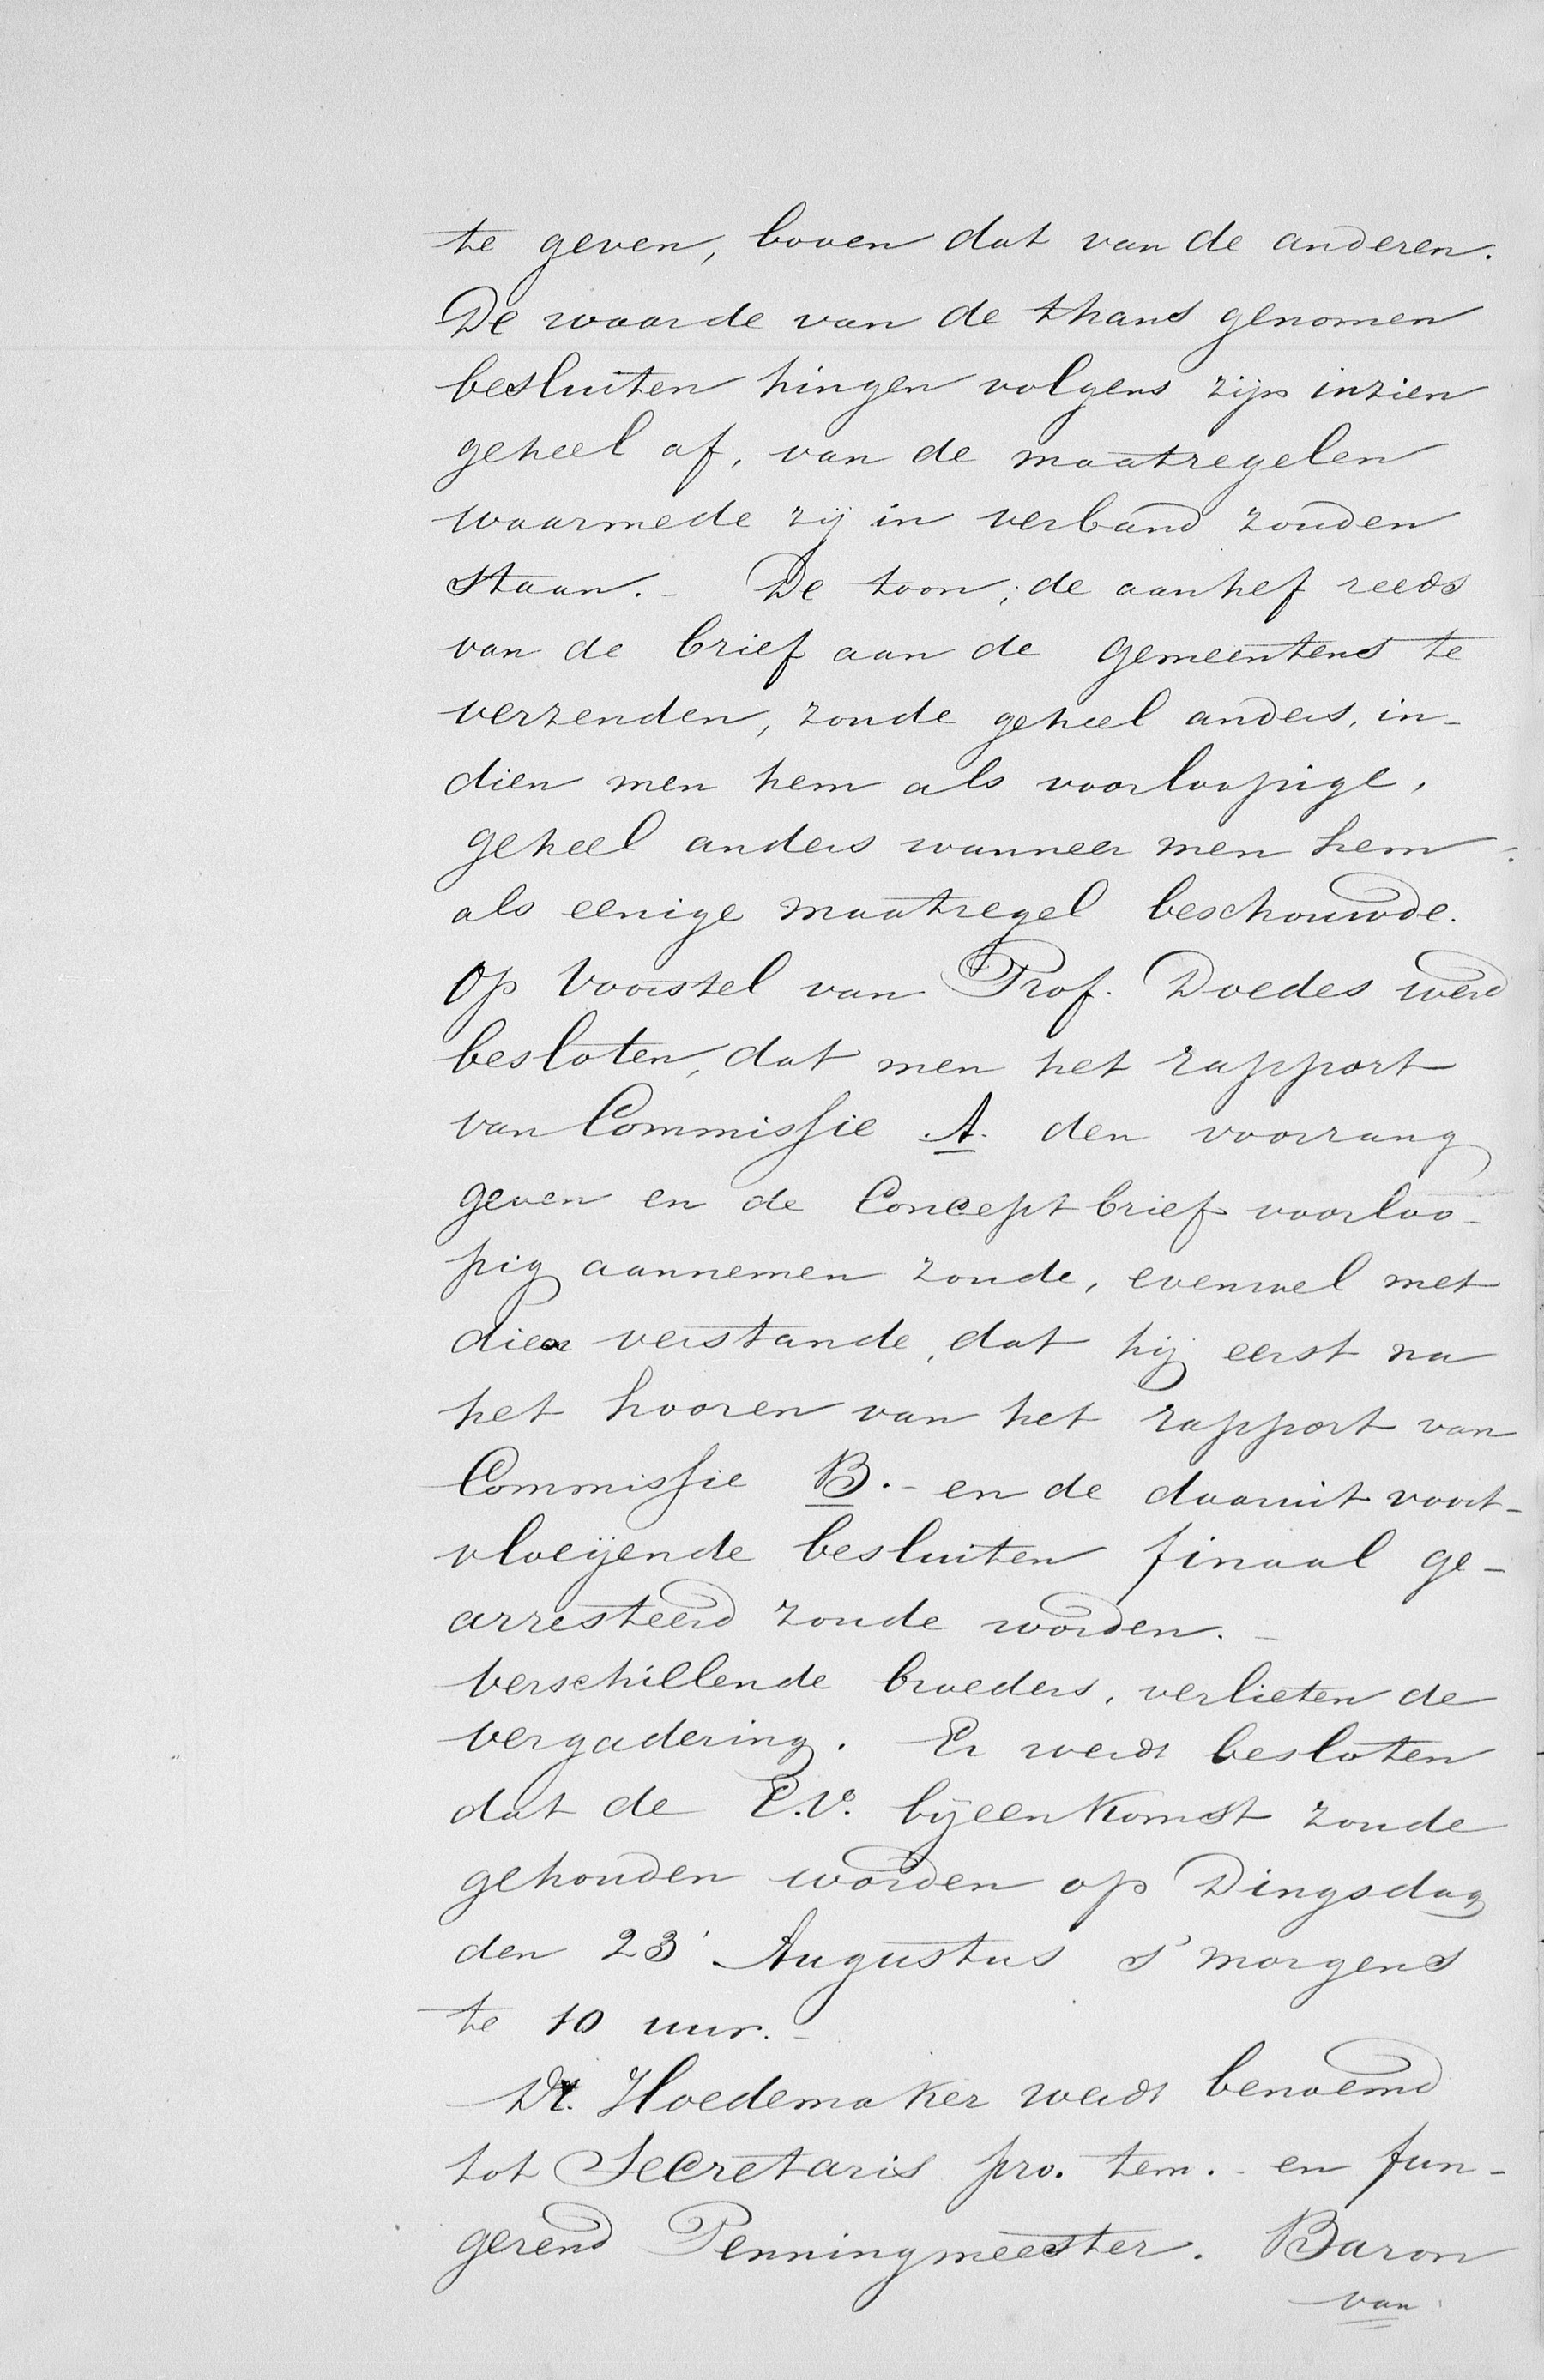 te geven, boven dat van de anderen.
De waarde van de thans genomen
besluiten hingen volgens zijn inzien
geheel af, van de maatregelen
waarmede zij in verband zouden
staan. - De toon, de aanhef reeds
van de brief aan de gemeentens te
verzenden, zoude geheel anders, in-
dien men hem als voorloopige,
geheel anders wanneer men hem
als eenige maatregel beschouwde.
Op Voorstel van Prof. Doedes werd
besloten, dat men het rapport
van Commissie A. den voorrang
geven en de Concept brief voorloo-
pig aannemen zoude, evenwel met
dien verstande, dat hij eerst na
het hooren van het rapport van
Commissie B. - en de daaruit voort-
vloeijende besluiten finaal ge-
arresteerd zoude worden. -
Verschillende broeders, verlieten de
vergadering. Er werdt besloten
dat de E.V. bijeenkomst zoude
gehouden worden op Dingsdag
den 23 Augustus s' morgens
te 10 uur. -
Dr. Hoedemaker werdt benoemd
tot Secretaris pro. tem. - en fun-
gerend Penningmeester. Baron
van